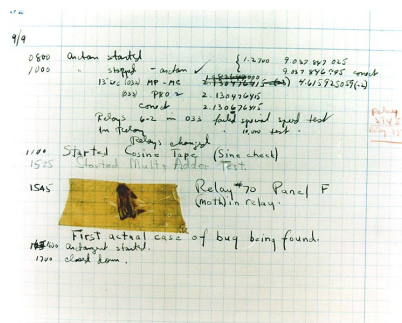 9/9
0800 Antan started { 1.2700 9.037 847 025
1000 " stopped - antan ✓ 9.037 846 995 correct
13"uc (032) MP - MC 2.130476415 4.615925059(-2)
(033) PRO 2 2.130476415
correct 2.130676415
Relays 6-2 in 033 failed special speed test
in relay " 10,000 test.
Relays changed
1100 Started Cosine Tape (Sine check)
1525 Started Mult+ Adder Test.
1545 Relay #70 Panel F
(moth) in relay.
First actual case of bug being found.
1630 antangent started.
1700 closed down.